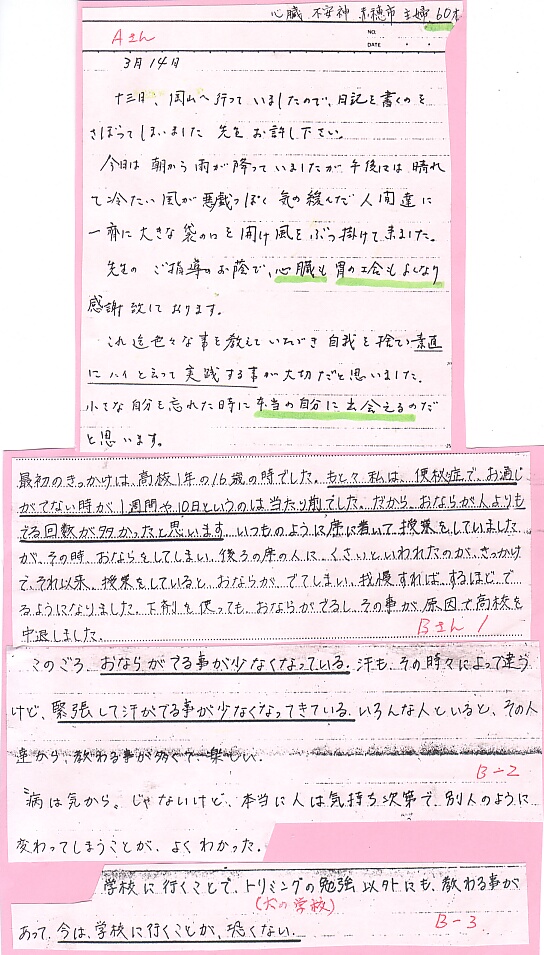 心臓 不安神 赤穂市 主婦 60才
Aさん
NO.
DATE
3月14日
十三日、岡山へ行っていましたので、日記を書くのを
さぼってしまいました 先生お許し下さい。
今日は朝から雨が降っていましたが午後には晴れ
て冷たい風が悪戯っぽく気の緩んだ人間達に
一斉に大きな袋の口を開け風をぶっ掛けて来ました。
先生のご指導のお蔭で、心臓も胃の工合もよくなり
感謝致しております。
これ迄色々な事を教えていただき自我を捨て素直
にハイと云って実践する事が大切だと思いました。
小さな自分を忘れた時に本当の自分に出会えるのだ
と思います。
最初のきっかけは、高校1年の16歳の時でした。もともと私は、便秘症で、お通じ
がでない時が1週間や10日というのは当たり前でした。だから、おならが人よりも
でる回数が多かったと思います。いつものように席に着いて、授業をしていました
が、その時、おならをしてしまい、後ろの席の人に、くさいといわれたのが、きっかけ
で、それ以来、授業をしていると、おならが、でてしまい、我慢すれば、するほど、で
るようになりました。下剤を使っても、おならがでるし、その事が原因で高校を
中退しました。
Bさん 1
このごろ、おならがでる事が少なくなっている。汗も、その時々によって違う
けど、緊張して汗がでる事が少なくなってきている。いろんな人といると、その人
達から、教わる事が多くて楽しい。
B-2
"病は気から"じゃないけど、本当に人は気持ち次第で、別人のように
変わってしまうことが、よくわかった。
学校に行くことで、トリミングの勉強以外にも、教わる事が
(犬の学校)
あって、今は、学校に行くことが、恐くない。
B-3